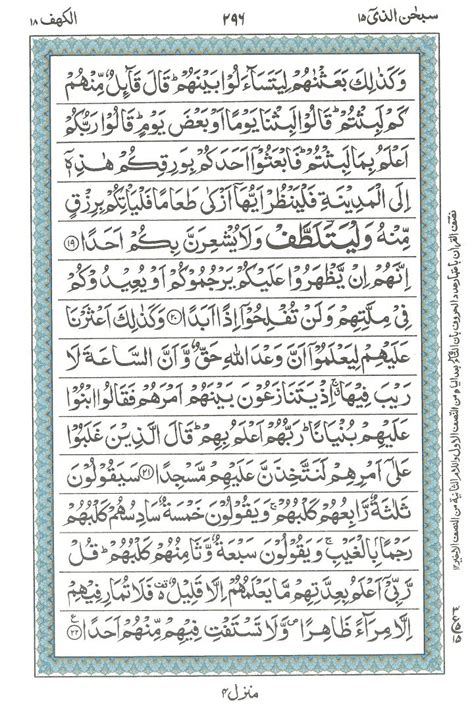 سبحٰن الذیٓ ١٥
٢٩٦
الكهف ١٨
وَكَذٰلِكَ بَعَثْنٰهُمْ لِيَتَسَآءَلُوْا بَيْنَهُمْ ؕ قَالَ قَآىِٕلٌ مِّنْهُمْ
كَمْ لَبِثْتُمْ ؕ قَالُوْا لَبِثْنَا يَوْمًا اَوْ بَعْضَ يَوْمٍ ؕ قَالُوْا رَبُّكُمْ
اَعْلَمُ بِمَا لَبِثْتُمْ ؕ فَابْعَثُوْۤا اَحَدَكُمْ بِوَرِقِكُمْ هٰذِهٖۤ
اِلَى الْمَدِيْنَةِ فَلْيَنْظُرْ اَيُّهَاۤ اَزْكٰى طَعَامًا فَلْيَاْتِكُمْ بِرِزْقٍ
مِّنْهُ وَلْيَتَلَطَّفْ وَلَا يُشْعِرَنَّ بِكُمْ اَحَدًا ﴿١٩﴾
اِنَّهُمْ اِنْ يَّظْهَرُوْا عَلَيْكُمْ يَرْجُمُوْكُمْ اَوْ يُعِيْدُوْكُمْ
فِيْ مِلَّتِهِمْ وَلَنْ تُفْلِحُوْۤا اِذًا اَبَدًا ﴿٢٠﴾ وَكَذٰلِكَ اَعْثَرْنَا
عَلَيْهِمْ لِيَعْلَمُوْۤا اَنَّ وَعْدَ اللّٰهِ حَقٌّ وَّاَنَّ السَّاعَةَ لَا
رَيْبَ فِيْهَا ۚ اِذْ يَتَنَازَعُوْنَ بَيْنَهُمْ اَمْرَهُمْ فَقَالُوا ابْنُوْا
عَلَيْهِمْ بُنْيَانًا ؕ رَبُّهُمْ اَعْلَمُ بِهِمْ ؕ قَالَ الَّذِيْنَ غَلَبُوْا
عَلٰۤى اَمْرِهِمْ لَنَتَّخِذَنَّ عَلَيْهِمْ مَّسْجِدًا ﴿٢١﴾ سَيَقُوْلُوْنَ
ثَلٰثَةٌ رَّابِعُهُمْ كَلْبُهُمْ ۚ وَيَقُوْلُوْنَ خَمْسَةٌ سَادِسُهُمْ كَلْبُهُمْ
رَجْمًۢا بِالْغَيْبِ ۚ وَيَقُوْلُوْنَ سَبْعَةٌ وَّثَامِنُهُمْ كَلْبُهُمْ ؕ قُلْ
رَّبِّيْۤ اَعْلَمُ بِعِدَّتِهِمْ مَّا يَعْلَمُهُمْ اِلَّا قَلِيْلٌ ۫ فَلَا تُمَارِ فِيْهِمْ
اِلَّا مِرَآءً ظَاهِرًا ۪ وَّلَا تَسْتَفْتِ فِيْهِمْ مِّنْهُمْ اَحَدًا ﴿٢٢﴾ ع
نصف القرآن باعتبار عدد الحروف بأن التاء بعد الياء من النصف الاول واللام الثانية من النصف الاخير ١٢
منزل ٤